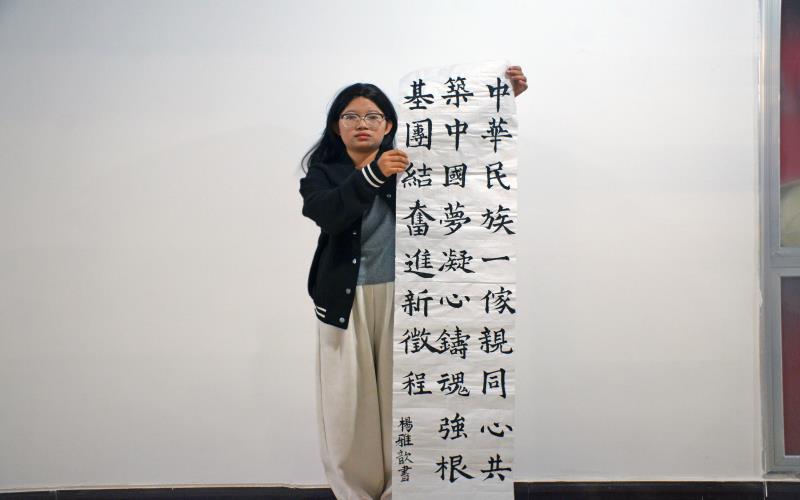 中華民族一傢親同心共
築中國夢凝心鑄魂強根
基團結奮進新徵程
楊雅歆書